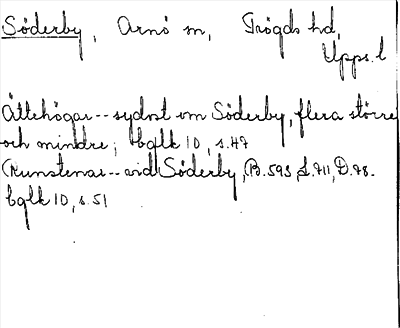 Söderby, Arnö sn, Trögds hd,
Upps. l
Ättehögar -- sydost om Söderby, flera större
och mindre; bglk 10, s. 47
Runstenar -- vid Söderby, B. 593, L. 711, D. 78.
bglk 10, s. 51